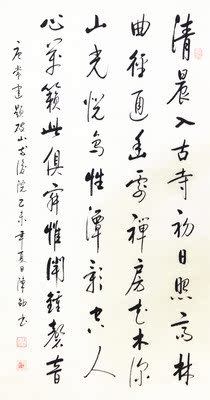 清晨入古寺初日照高林
曲徑通幽處禪房花木深
山光悦鳥性潭影空人
心萬籟此俱寂惟聞鐘磬音
唐常建題破山寺後院乙未年夏日陳書